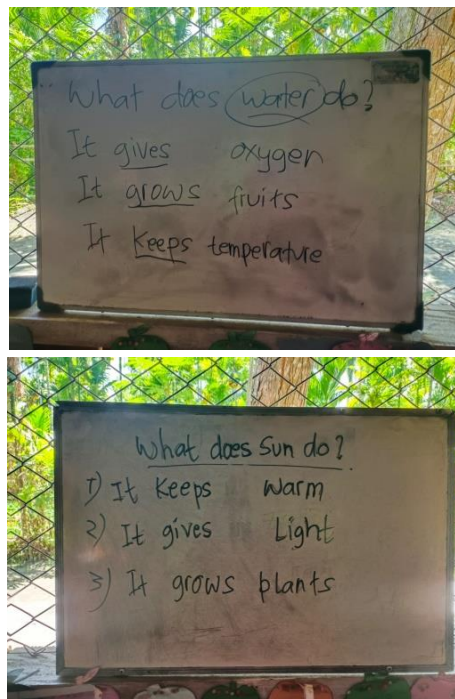 What does water do?
It gives oxygen
It grows fruits
It keeps temperature
What does Sun do?
1) It keeps warm
2) It gives Light
3) It grows plants